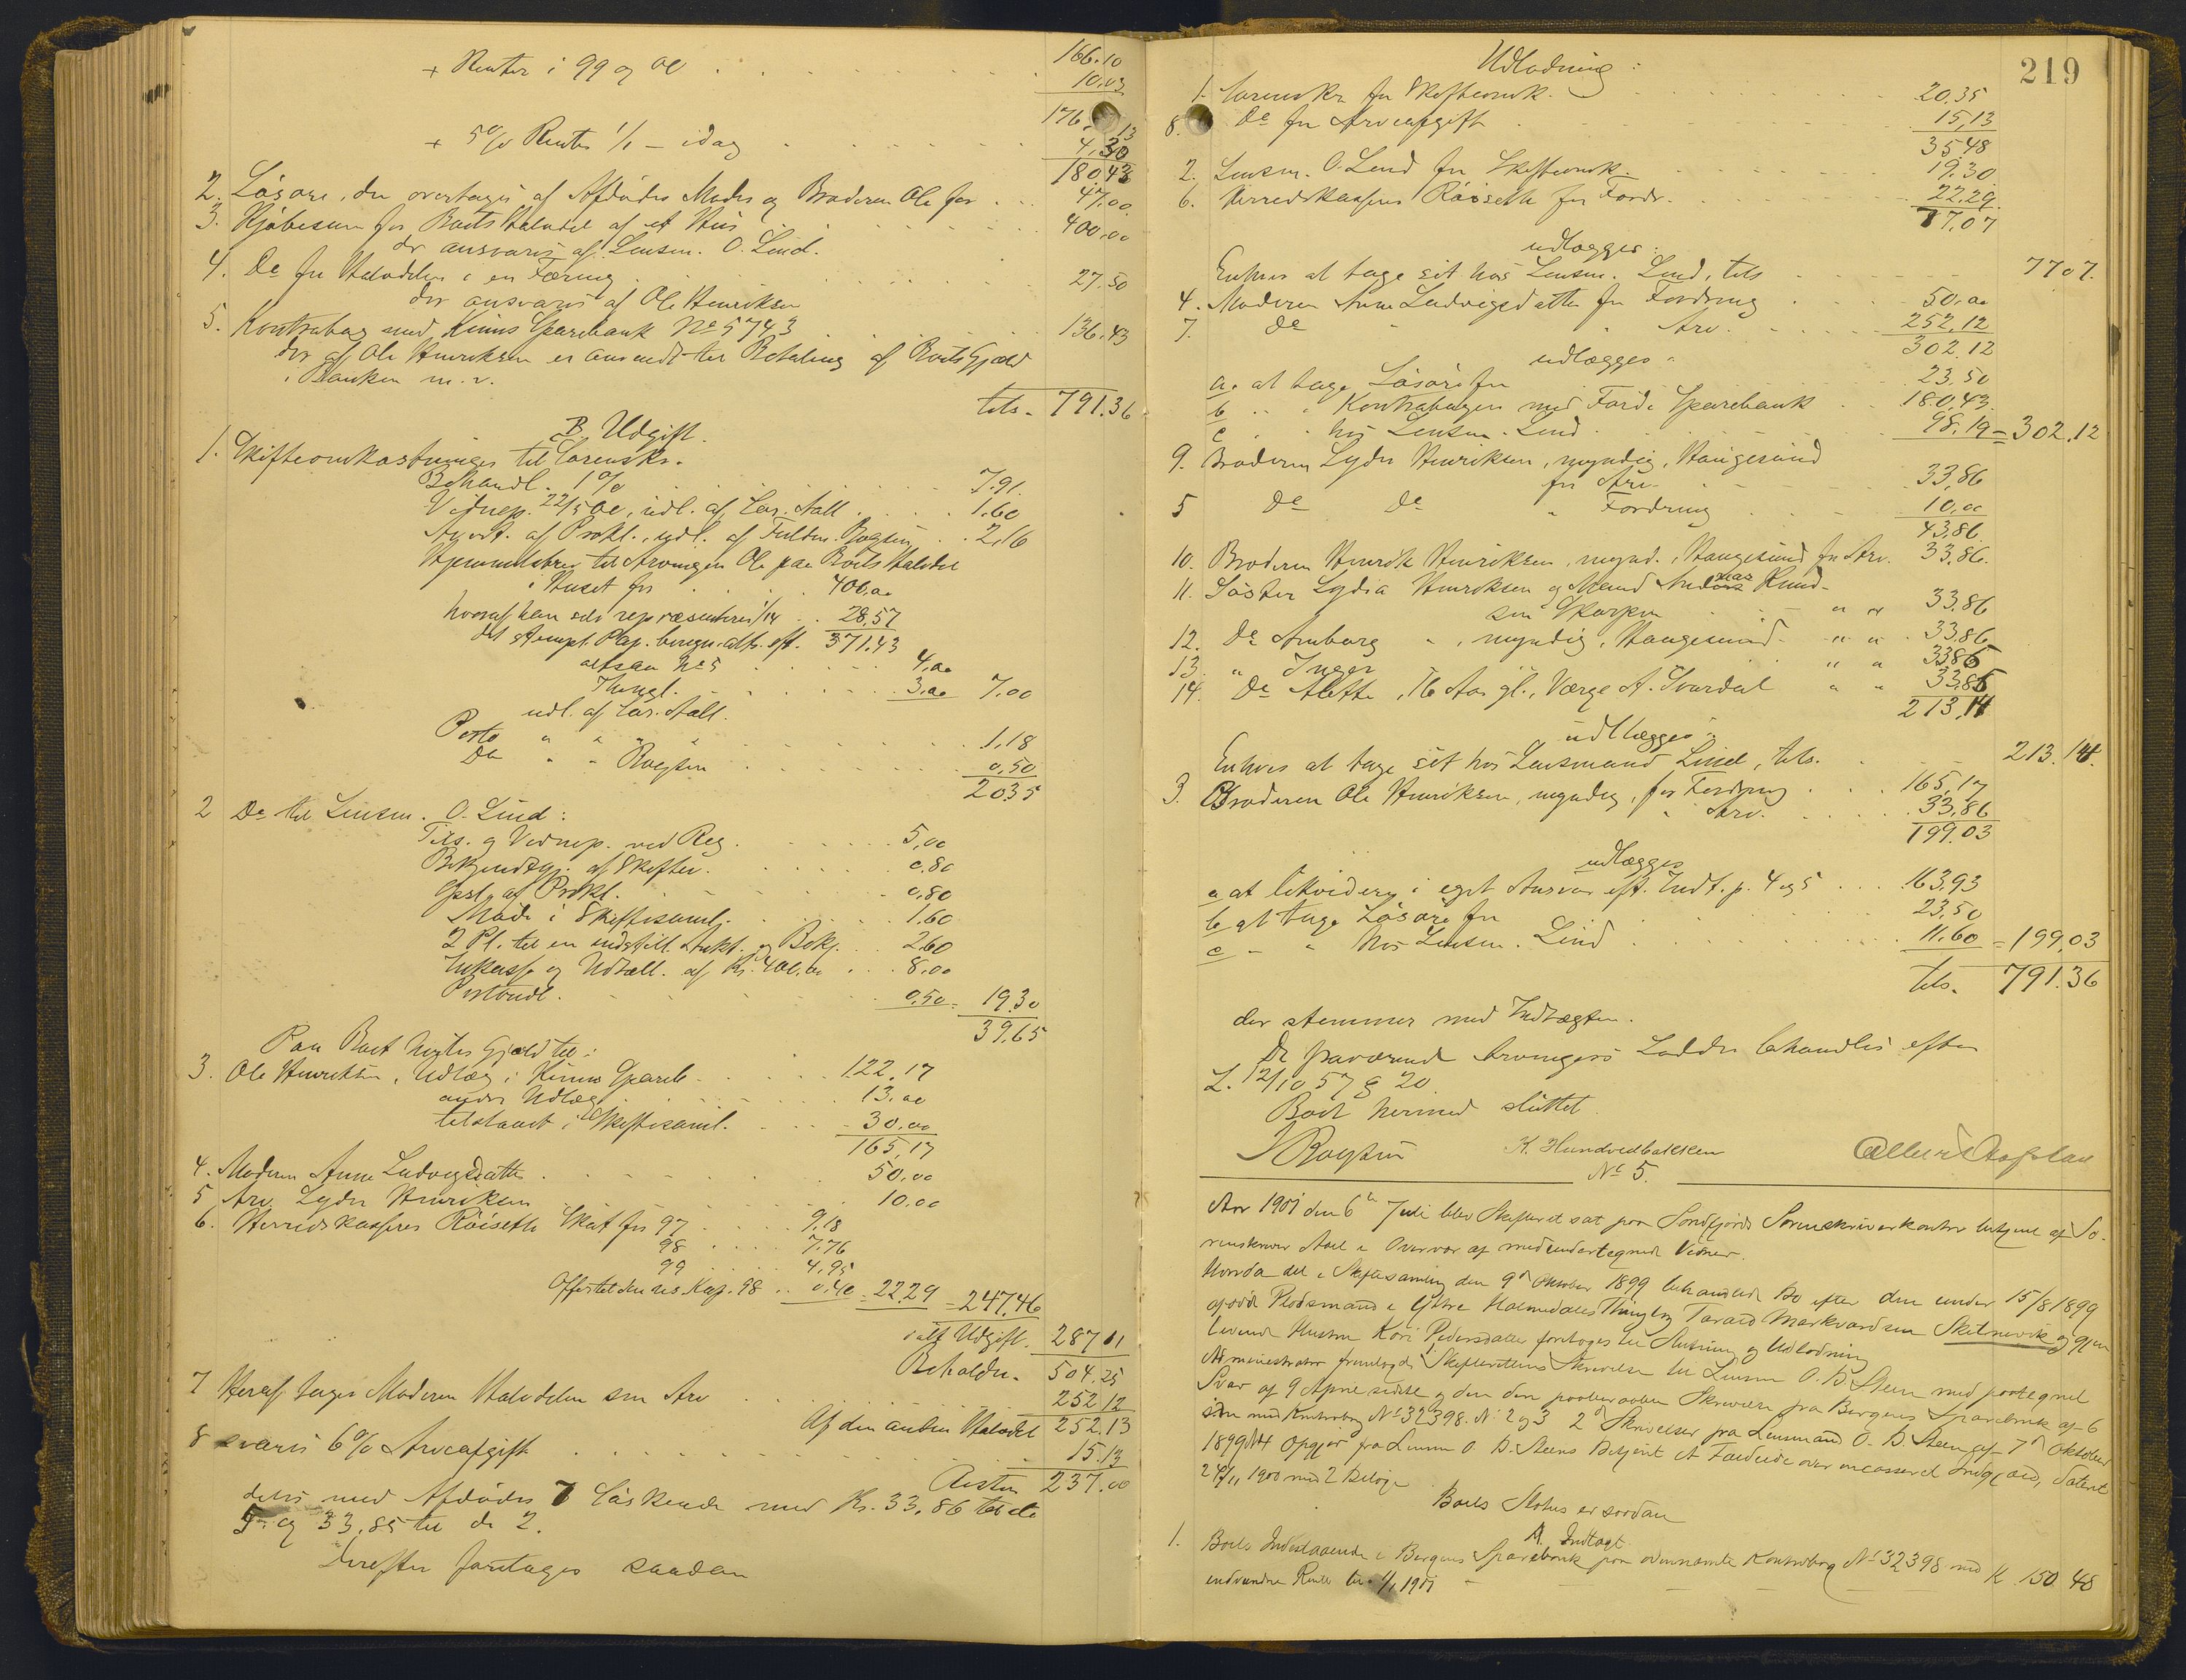 166.10
+ Renter i 99 og 00 . . . 10.03
176.13
+ 5% Renter 1/1 - idag . . . 4.30
180.43
2. Løsøre, der overtages af Afdødes Moder og Broderen Ole for . . . 47.00
3. Kjøbesum for Boets Halvdel af et Hus . . . 400,00
der ansvares af Lensm. O. Lind.
4. Do for Halvdelen i en Færing . . . 27.50
der ansvares af Ole Henriksen
5. Kontrabog med Kinns Sparebank No 5743 . . . 136.43
der af Ole Henriksen er anvendt til Betaling af Boets Gjæld
i Banken m. v.
tils. 791.36
B. Udgift.
1. Skifteomkostninger til Sorenskr.
Behandl. 1% . . . 7.91.
Vidnep. 22/5 00, udl. af Sor. Aall . . . 1.60
Avert. af Prokl., udl. af Fuldm. Rogstun . . 2,16
Hjemmelsbrev til Arvingen Ole paa Boets Halvdel
i Huset for . . . 400,00
hvoraf han selv repræsenterer 1/14 . . 28,57
det stempl. Pap. beregn. altsaa eft. 371.43
altsaa No 5 . . . 4,00
Thingl. . . . 3,00 7.00
udl. af Sor. Aall.
Porto " " " . . . 1,18
Do " " Rogstun . . . 0,50
20.35
2 Do til Lensm. O. Lind:
Tils. og Vidnep. ved Reg. . . . 5,00
Bekjendtgj. af Skiftet . . . 0.80
Opsl. af Prokl. . . . 0,80
Møde i Skiftesaml. . . . 1.60
2 Pl. til en indstill. Aukt. og Bekj. . . 2.60
Inkasso og Udbetall. af Kr. 400,00 . . . 8.00
Postbudl. . . . 0,50 = 19.30
39.65
Paa Boet hviler Gjæld til:
3. Ole Henriksen, Udlæg i Kinns Spareb. . . . 122.17
andre Udlæg . . . 13.00
tilstaaet i Skiftesaml. . . . 30,00
165,17
4. Moderen Anne Ludvigsdatter . . . 50,00
5 Arv. Lyder Henriksen . . . 10.00
6. Herredskasserer Röiseth Skat for 97 . . . 9,18
98 . . . 7.76
99 . . . 4.95
98 . . 0.40 = 22.29 = 247.46
ialt Udgift. 287.11
Beholdn. 504.25
7 Heraf tages Moderen Halvdelen som Arv . . . 252.12
Af den anden Halvdel 252.13
8 svares 6% Arveafgift . . . 15.13
Resten 237.00
deles med Afdødes 7 Søskende med Kr. 33,86 til de
5 og 33,85 til de 2.
Derefter foretages saadan
219
Udlodning:
1. Sorenskr. for Skifteomk. . . . 20.35
8. Do for Arveafgift . . . 15,13
35.48
2. Lensm. O. Lind for Skifteomk. . . . 19.30
6. Herredskasserer Röiseth for Fordr. . . . 22.29.
77,07
udlægges:
Enhver at tage sit hos Lensm. Lind, tils . . . 7707.
4. Moderen Anne Ludvigsdatter for Fordring . . . 50,00
7. Do " " Arv. . . . 252,12
302.12
udlægges:
a. at tage Løsøre for . . . 23.50
b " " Kontrabogen med Förde Sparebank . . . 180.43
c " " hos Lensm. Lind . . . 98.19 = 302.12
9. Broderen Lyder Henriksen, myndig, Haugesund
for Arv . . . 33,86
5 Do Do " Fordring . . . 10,00
43.86
10. Broderen Henrik Henriksen, mynd., Haugesund for Arv. 33,86.
11. Søster Lydia Henriksen og Mand Andreas Knud-
sen Skorpen " " 33,86
12. Do Amborg " , myndig, Haugesund " " 33.86
13 " Inger " " 33.85
14. Do Alette, 16 Aar gl., Værge A. Svardal " " 33.85
213,14
udlægges:
Enhver at tage sit hos Lensmand Lind, tils. . . . 213.14.
3. Broderen Ole Henriksen, myndig, for Fordring . . . 165,17
" Arv. . . . 33,86
199.03
udlægges
a at likvidere i eget Ansvar eft. Indt. p. 4 og 5 . . . 163.93
b at tage Løsøre for . . . 23,50
c " " hos Lensm. Lind . . . 11.60 = 199,03
tils. 791.36
der stemmer med Indtægten.
De fraværende Arvingers Lodder behandles efter
L. 12/10 57 § 20.
Boet hermed sluttet.
Rogstun K. Hundvedbakken
No 5.
Aar 1901 den 6te Juli blev Skifteret sat paa Søndfjords Sorenskriverkontor betjent af So-
renskriver Aall i Overvær af medundertegnede Vidner.
Hvorda det i Skiftesamling den 9de Oktober 1899 behandlede Bo efter den under 15/8 1899
afdøde Plodsmand i Yttre Holmedals Thinglag Tarald Markvardsen Skitnevik og gjen
levende Hustru Kari Pedersdatter foretoges til Slutning og Udlodning
Administrator fremlagde Skifterettens Skrivelse til Lensm O. B. Steen med paategnet
Svar af 9 April sidstl. og den deri paaberaabte Skrivelse fra Bergens Sparebank af 6
s.m. med Kontrabog No 32398. No 2 og 3 2de Skrivelser fra Lensmand O. B. Steen af 7de Oktober
1899 No 4 Opgjør fra Lensm O. B. Steens Betjent A. over incasseret Indgjæld, dateret
24/11 1900 med 2 Bilag
Boets Status er saadan
A. Indtægt
1. Boets Indestaaende i Bergens Sparebank paa ovennævnte Kontrabog No 32398 med
indvundne Renter til 1/1 1901 - - - K 150.48